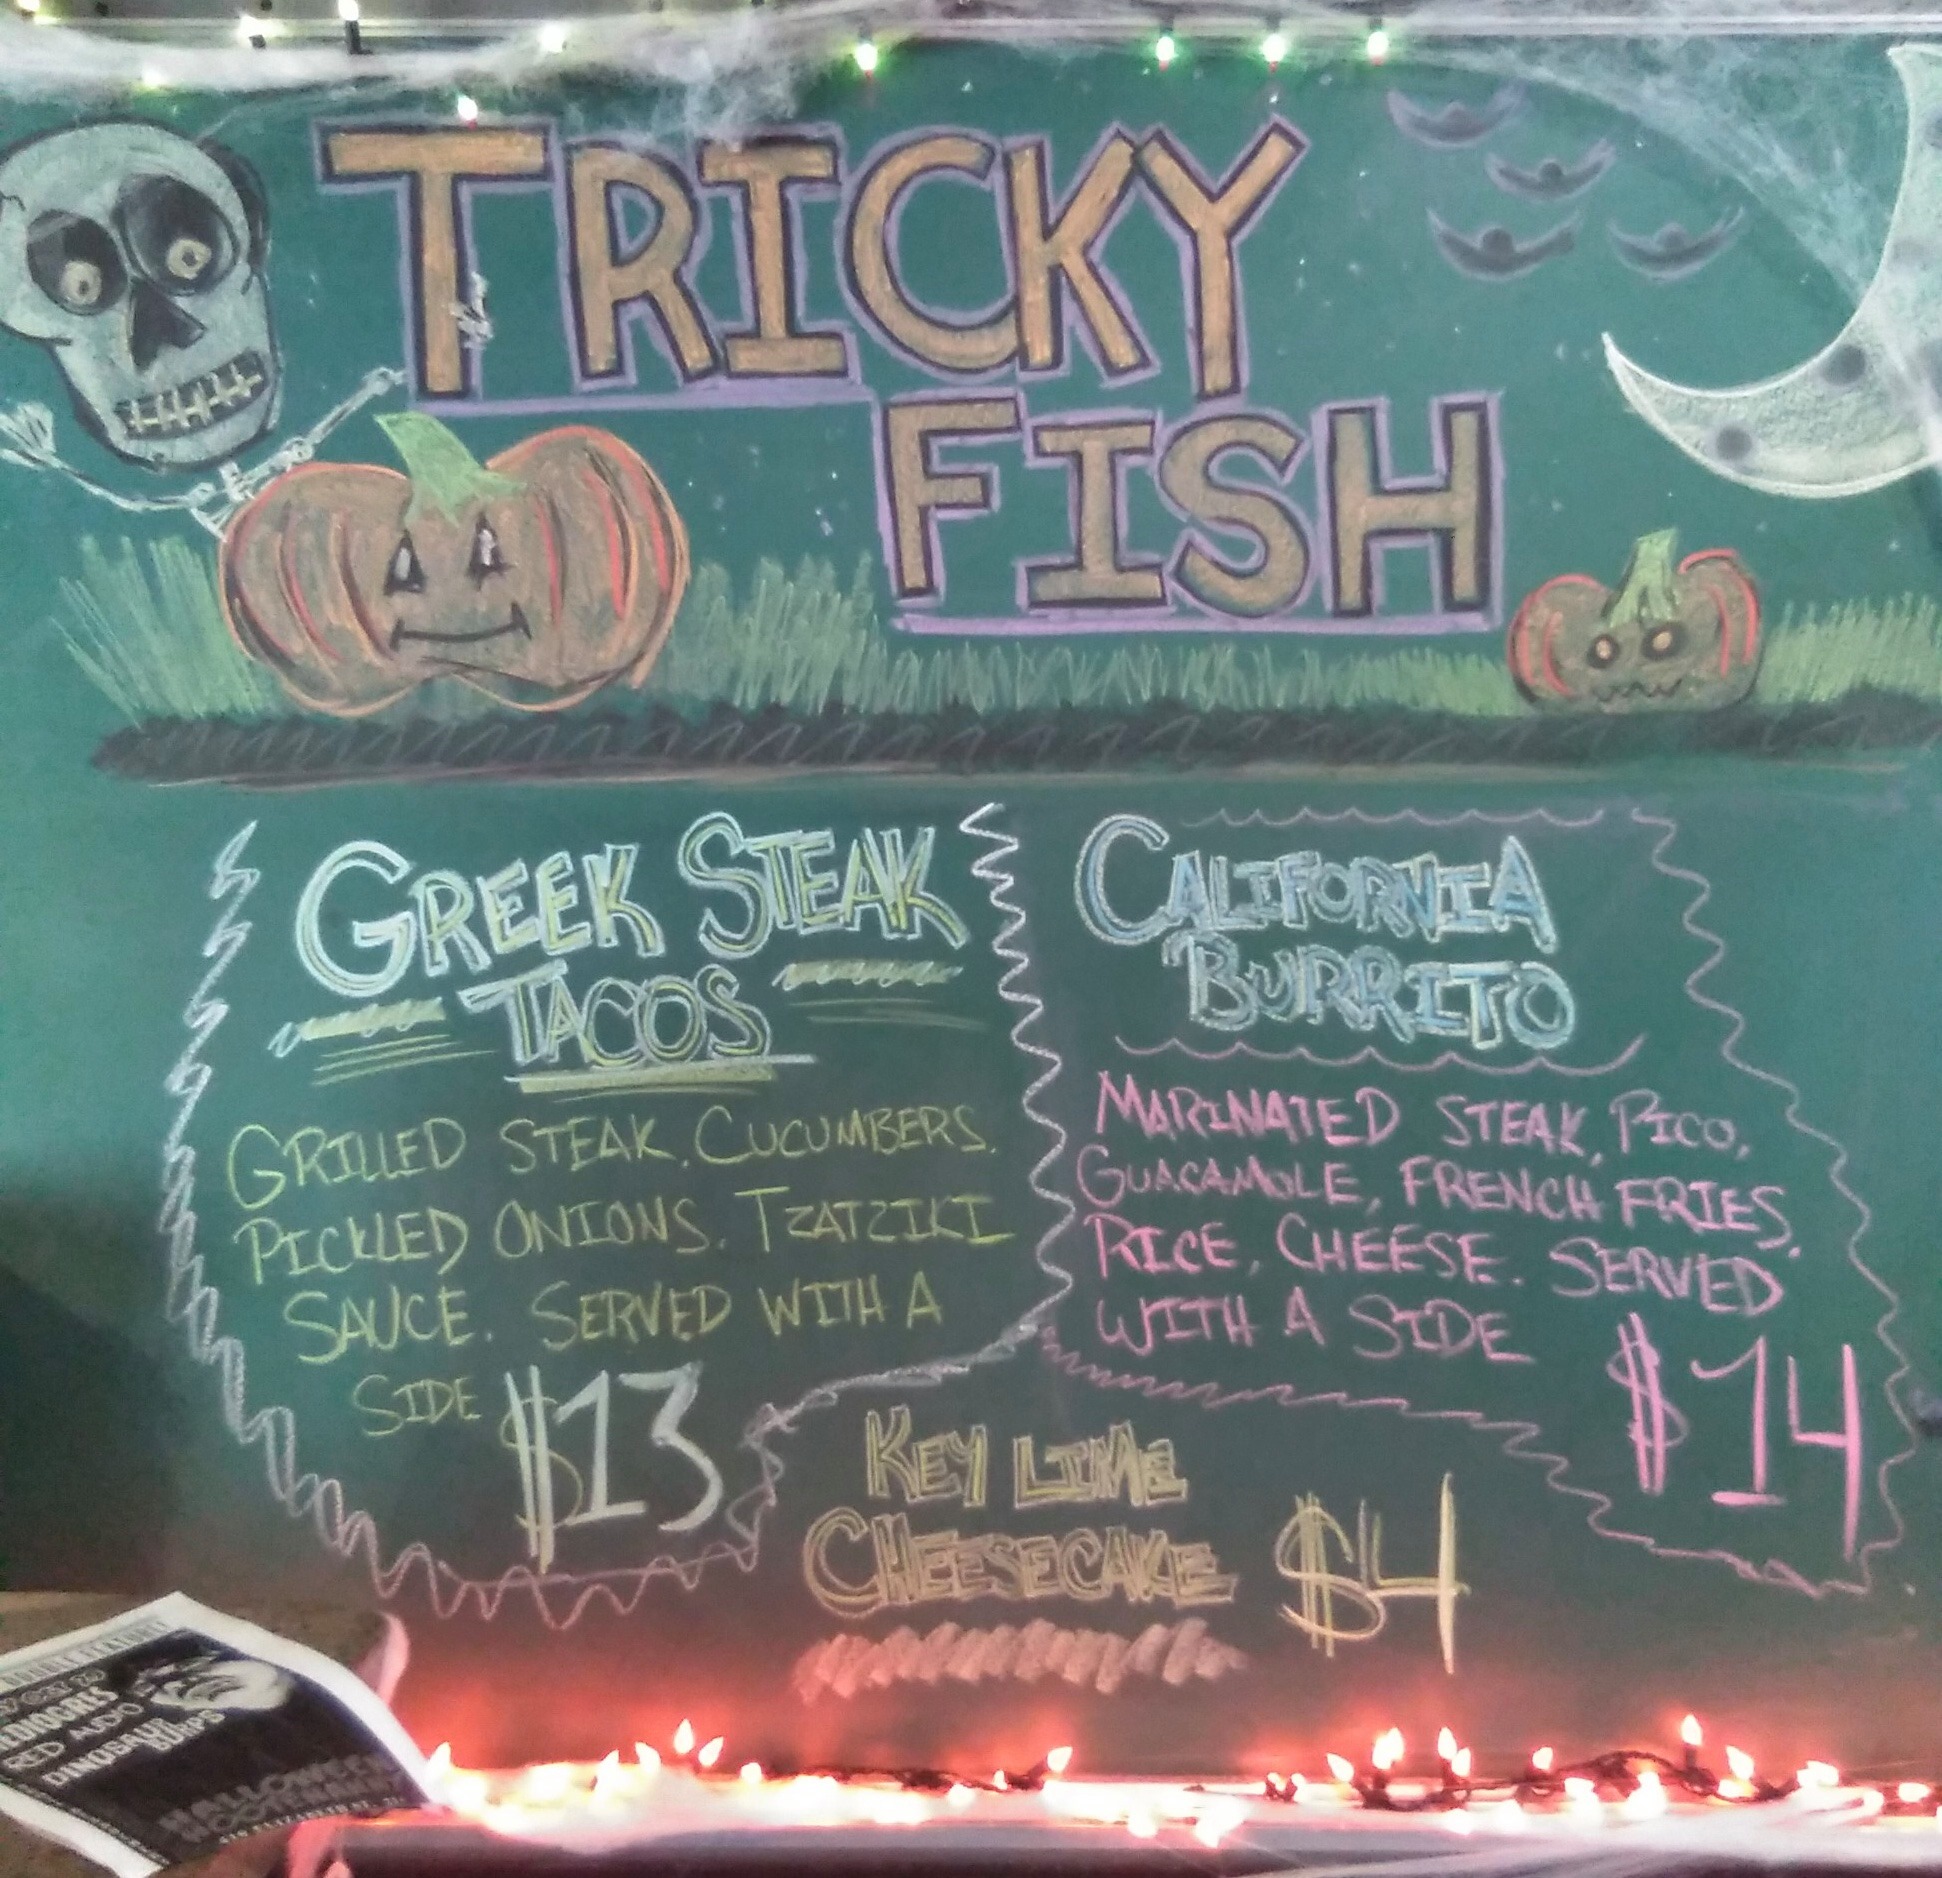 TRICKY
FISH
GREEK STEAK
TACOS
GRILLED STEAK, CUCUMBERS,
PICKLED ONIONS, TZATZIKI
SAUCE. SERVED WITH A
SIDE $13
CALIFORNIA
BURRITO
MARINATED STEAK, PICO,
GUACAMOLE, FRENCH FRIES,
RICE, CHEESE. SERVED
WITH A SIDE
$14
KEY LIME
CHEESECAKE $4
RED AUDIO
HALLOWEEN